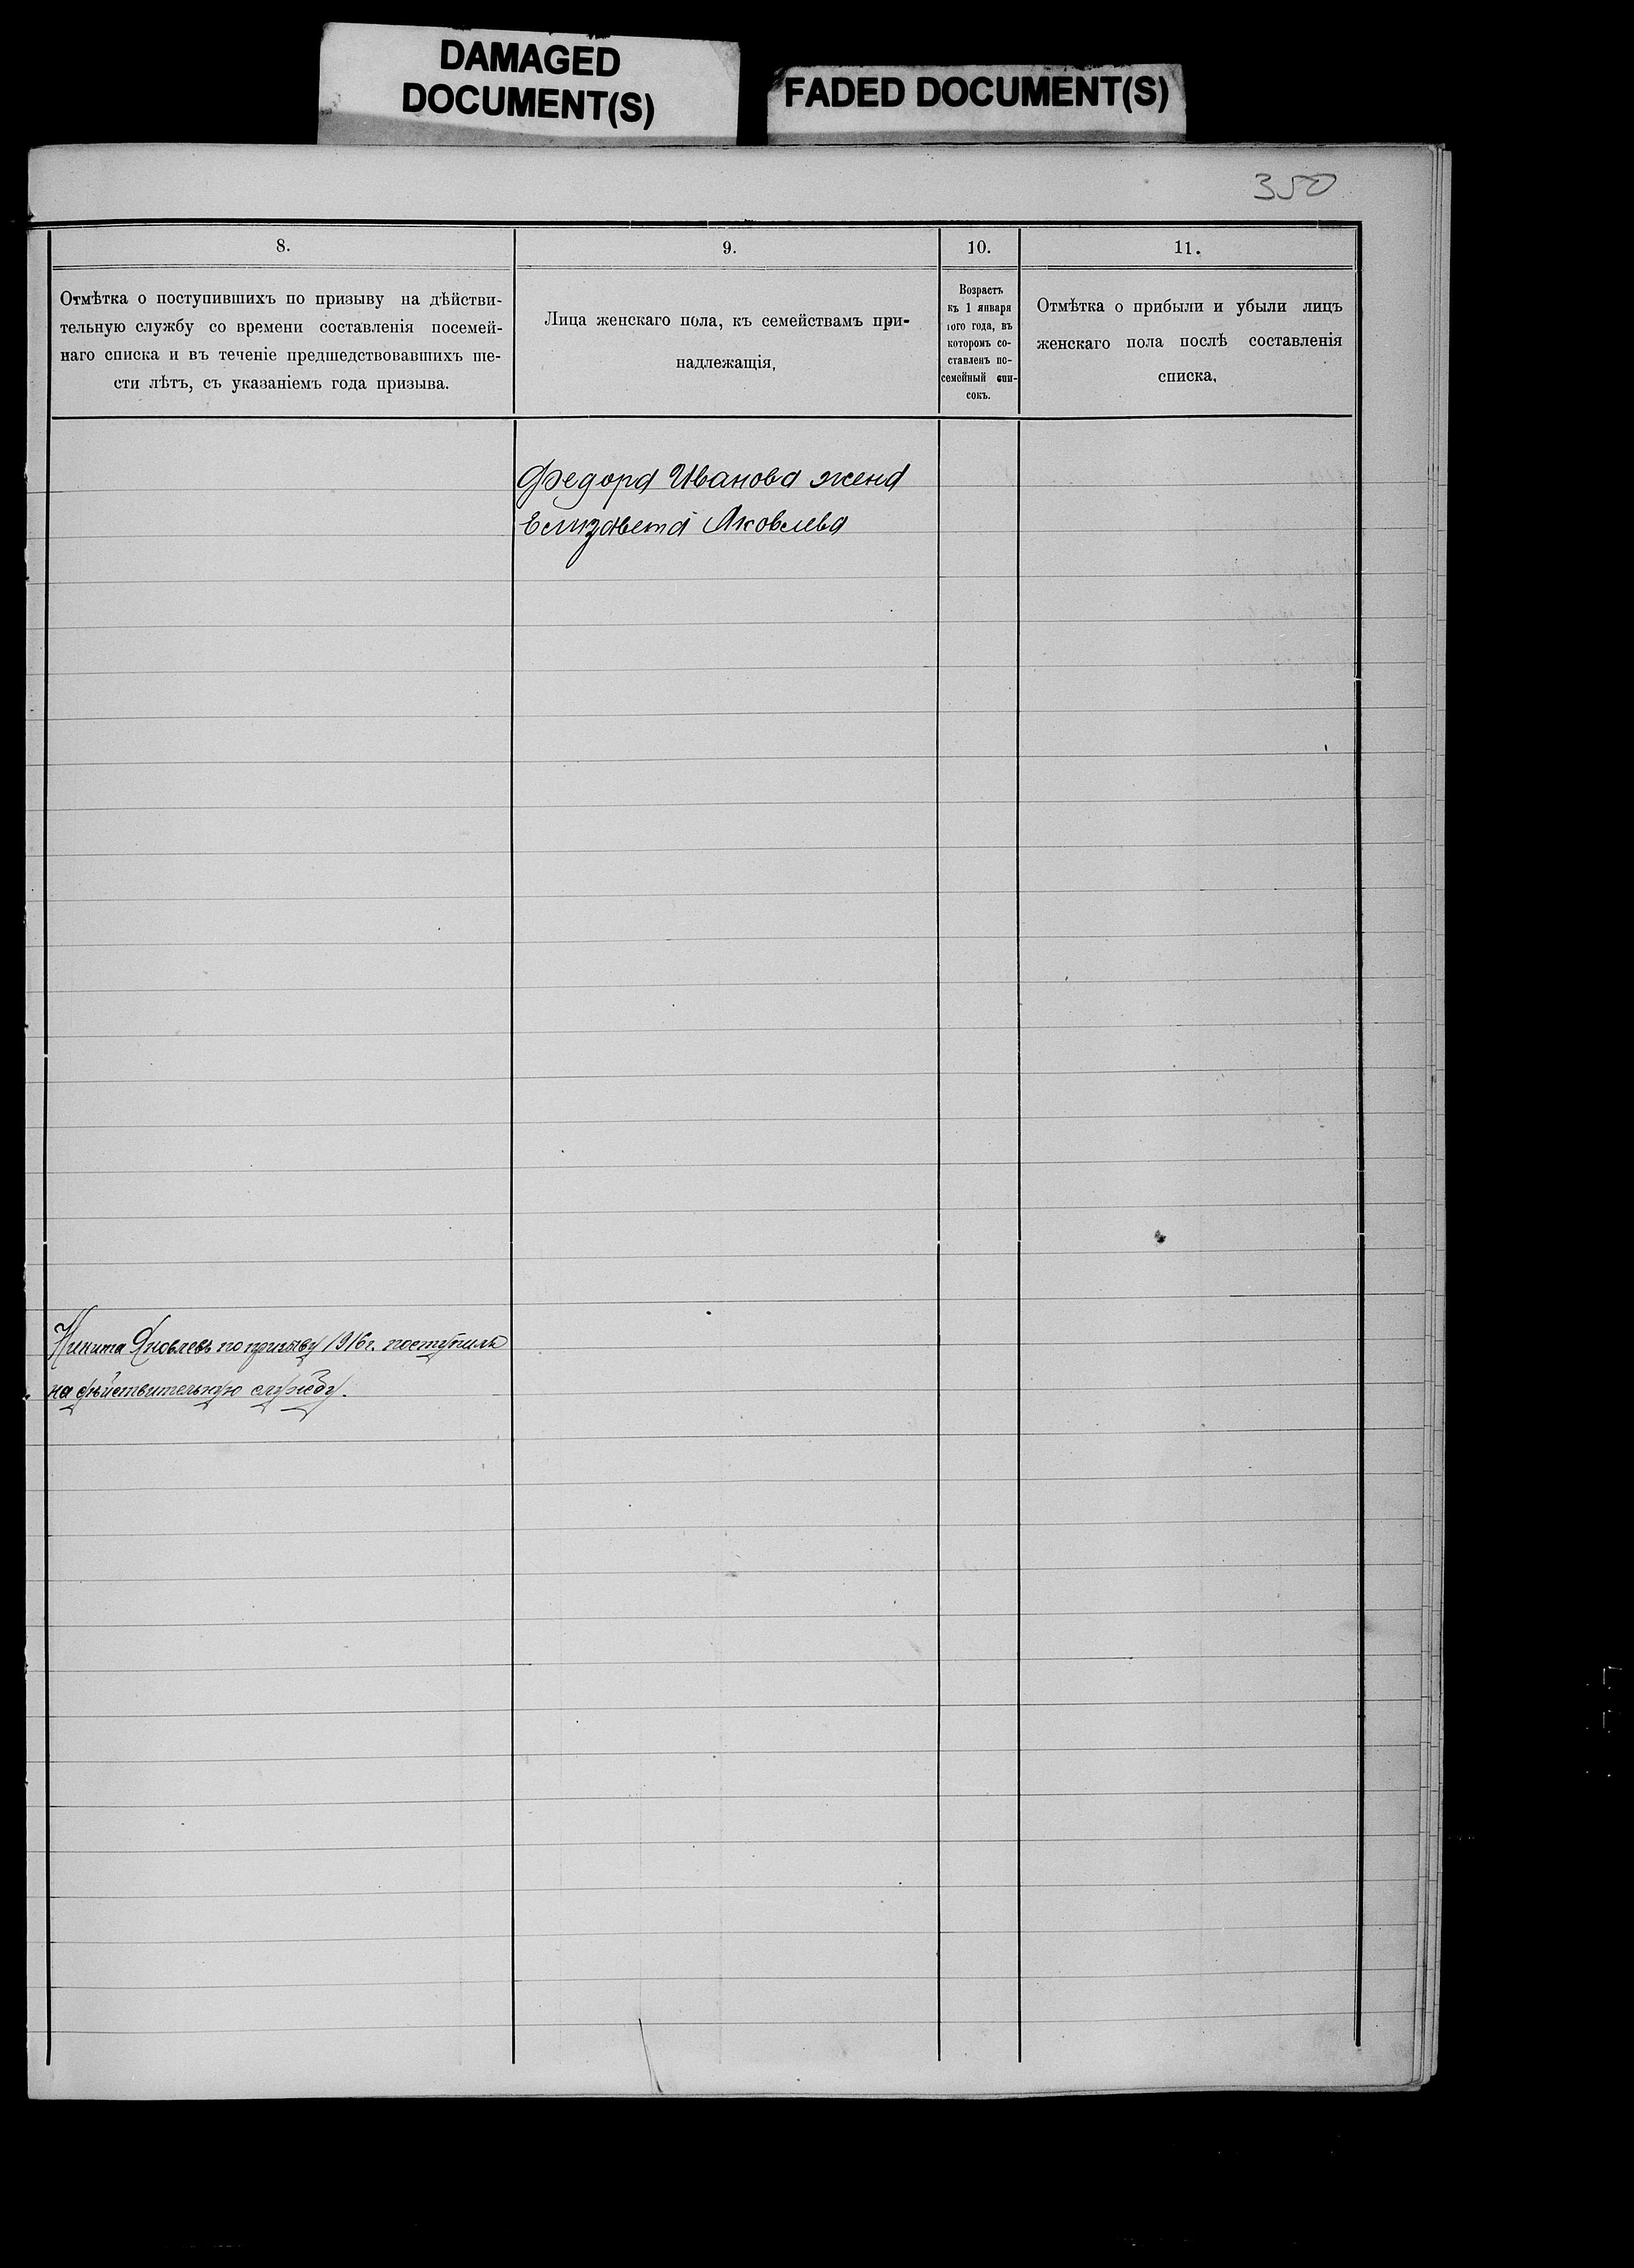 DAMAGED
DOCUMENT(S)
FADED DOCUMENT(S)
350
8.
Отмѣтка о поступившихъ по призыву на дѣйстви-
тельную службу со времени составленія посемей-
наго списка и въ теченіе предшедствовавшихъ ше-
сти лѣтъ, съ указаніемъ года призыва.
9.
Лица женскаго пола, къ семействамъ при-
надлежащія,
10.
Возрастъ
къ 1 января
1ого года, въ
которомъ со-
ставленъ по-
семейный спи-
сокъ.
11.
Отмѣтка о прибыли и убыли лицъ
женскаго пола послѣ составленія
списка,
Федора Иванова жена
Елизавета Яковлева
Никита Яковлевъ по призыву 1916 г. поступилъ
на дѣйствительную службу.